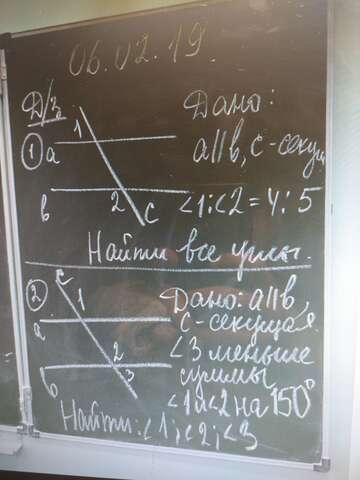 06.02.19.
Д/з
Дано:
1
1
a
a||b, c - секущ
b
2
c
<1:<2=4:5
Найти все углы.
2
c
1
Дано: a||b,
a
c-секущая.
2
<3 меньше
b
3
суммы
<1 и <2 на 150°
Найти: <1; <2; <3